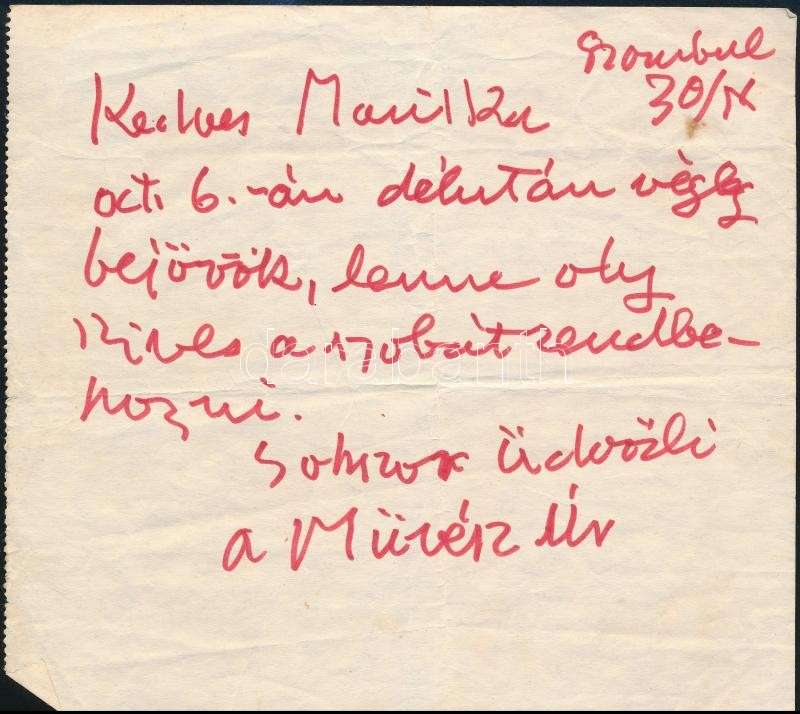 Szombat
30/IX
Kedves Mariska
oct. 6.-án délután végleg
bejövök, lenne oly
szives a szobát rendbe-
hozni.
Sokszor üdvözli
a Müvész Úr
darabanth